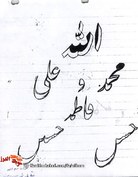 الله
محمد و علی
فاطمه
حسن حسین